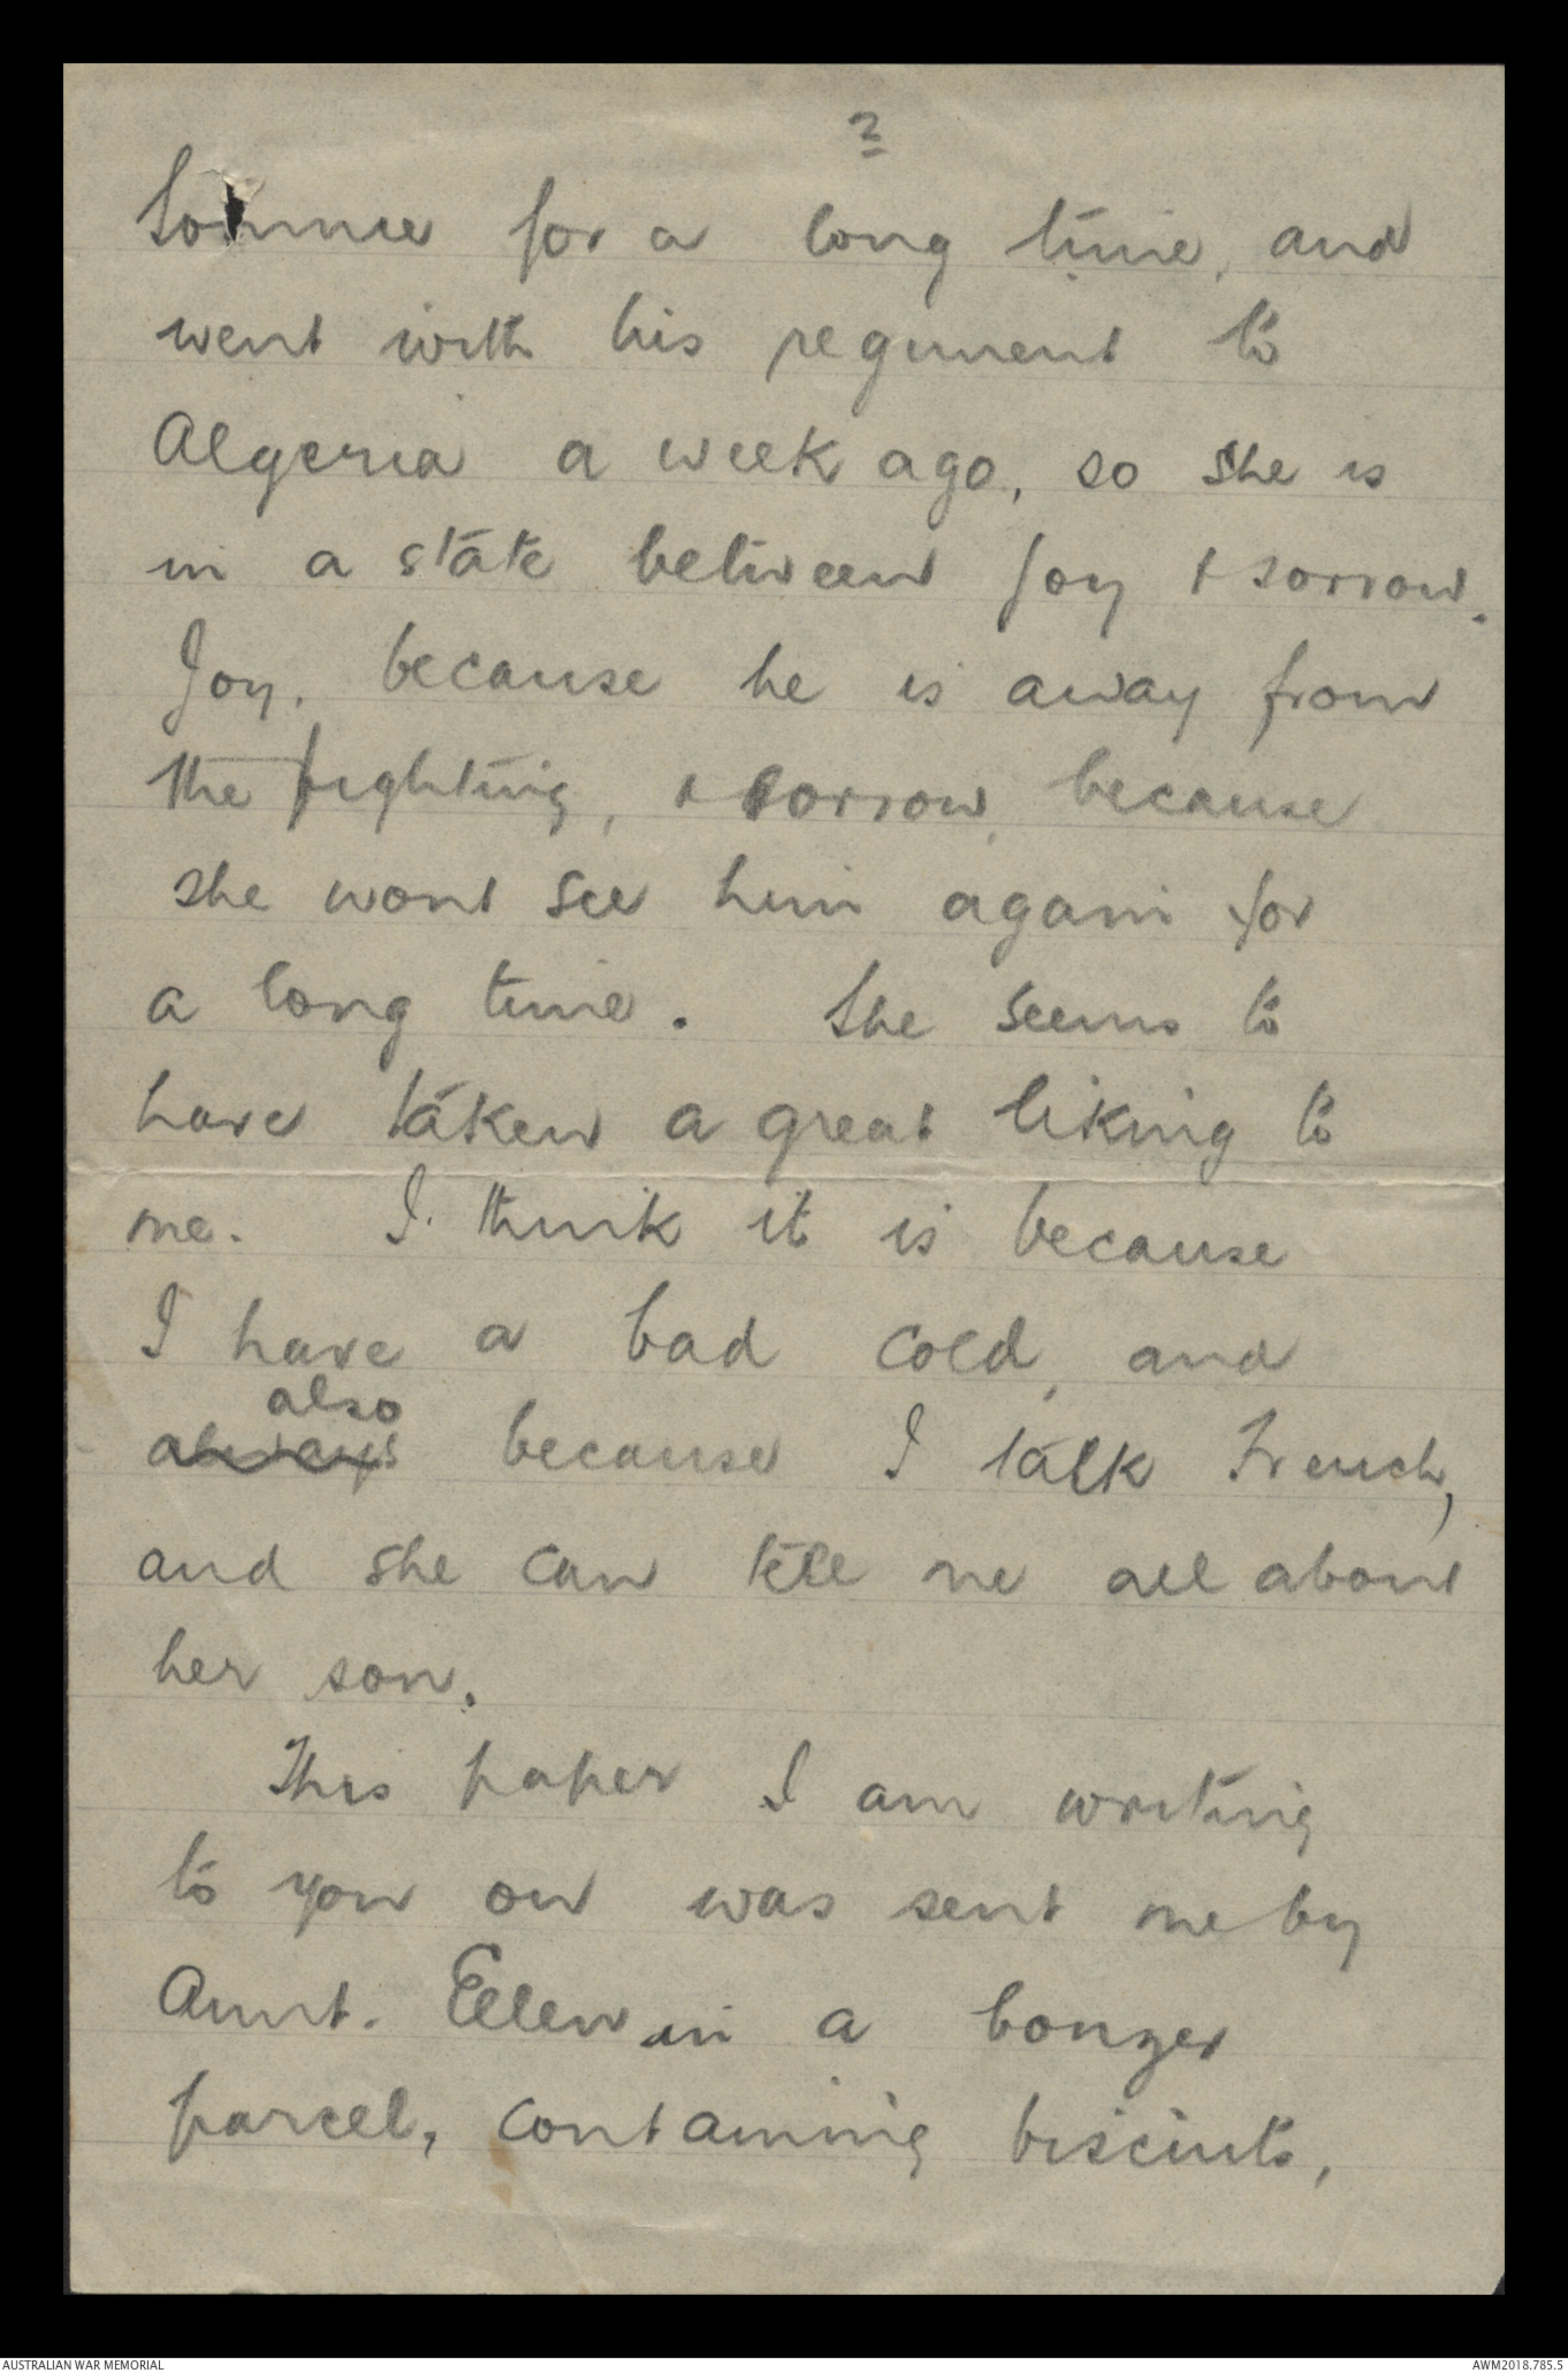 2
Somme for a long time, and
went with his regiment to
Algeria a week ago, so she is
in a state between joy & sorrow.
Joy, because he is away from
the fighting, & sorrow, because
she wont see him again for
a long time. She seems to
have taken a great liking to
me. I think it is because
I have a bad cold, and
also
always because I talk French,
and she can tell me all about
her son.
This paper I am writing
to you on was sent me by
Aunt. Ellen in a bonzer
parcel, containing biscuits,
AUSTRALIAN WAR MEMORIAL
AWM2018.785.5